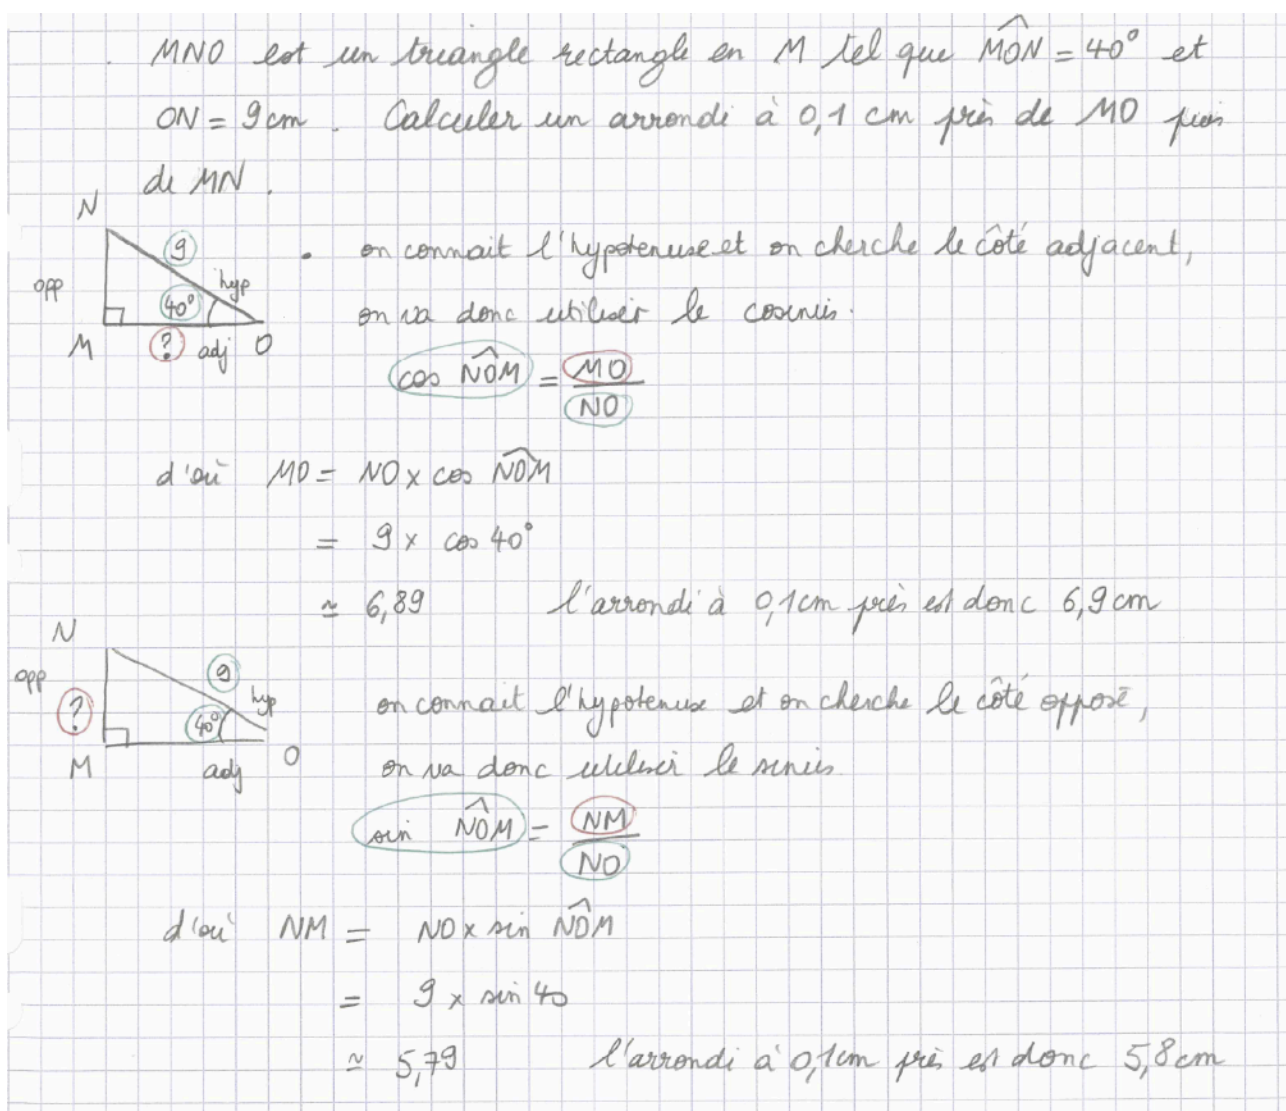 . MNO est un triangle rectangle en M tel que M̂ON = 40° et
ON = 9cm . Calculer un arrondi à 0,1 cm près de MO puis
de MN .
N
9
opp
hyp
40°
M
?
adj
O
. on connait l'hypotenuse et on cherche le côté adjacent,
on va donc utiliser le cosinus.
cos N̂OM = MO
NO
d'où MO = NO x cos N̂OM
= 9 x cos 40°
≃ 6,89 l'arrondi à 0,1cm près est donc 6,9 cm
N
opp
9
?
hyp
40°
M
adj
O
on connait l'hypotenuse et on cherche le côté opposé,
on va donc utiliser le sinus
sin N̂OM = NM
NO
d'où NM = NO x sin N̂OM
= 9 x sin 40
≃ 5,79 l'arrondi à 0,1cm près est donc 5,8 cm